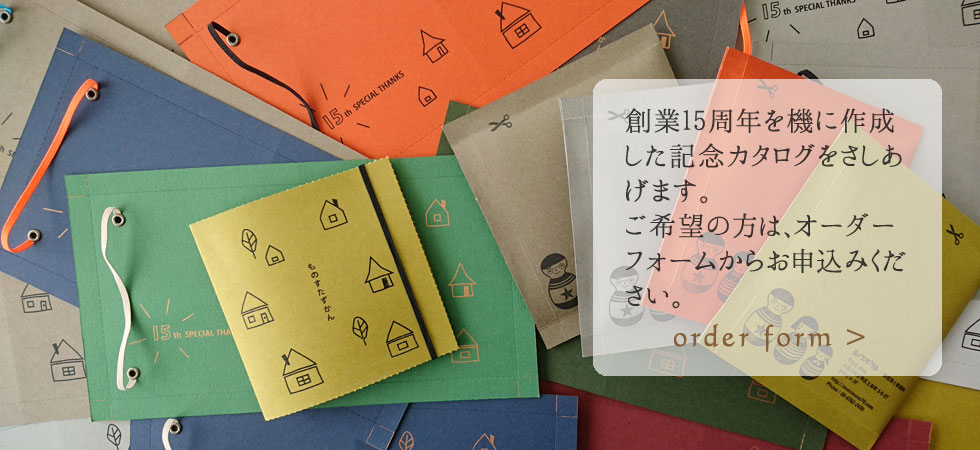 15th SPECIAL THANKS
15th SPECIAL THANKS
15th SPECIAL THANKS
ものすたずかん
創業15周年を機に作成
した記念カタログをさしあ
げます。
ご希望の方は、オーダー
フォームからお申込みくだ
さい。
order form >